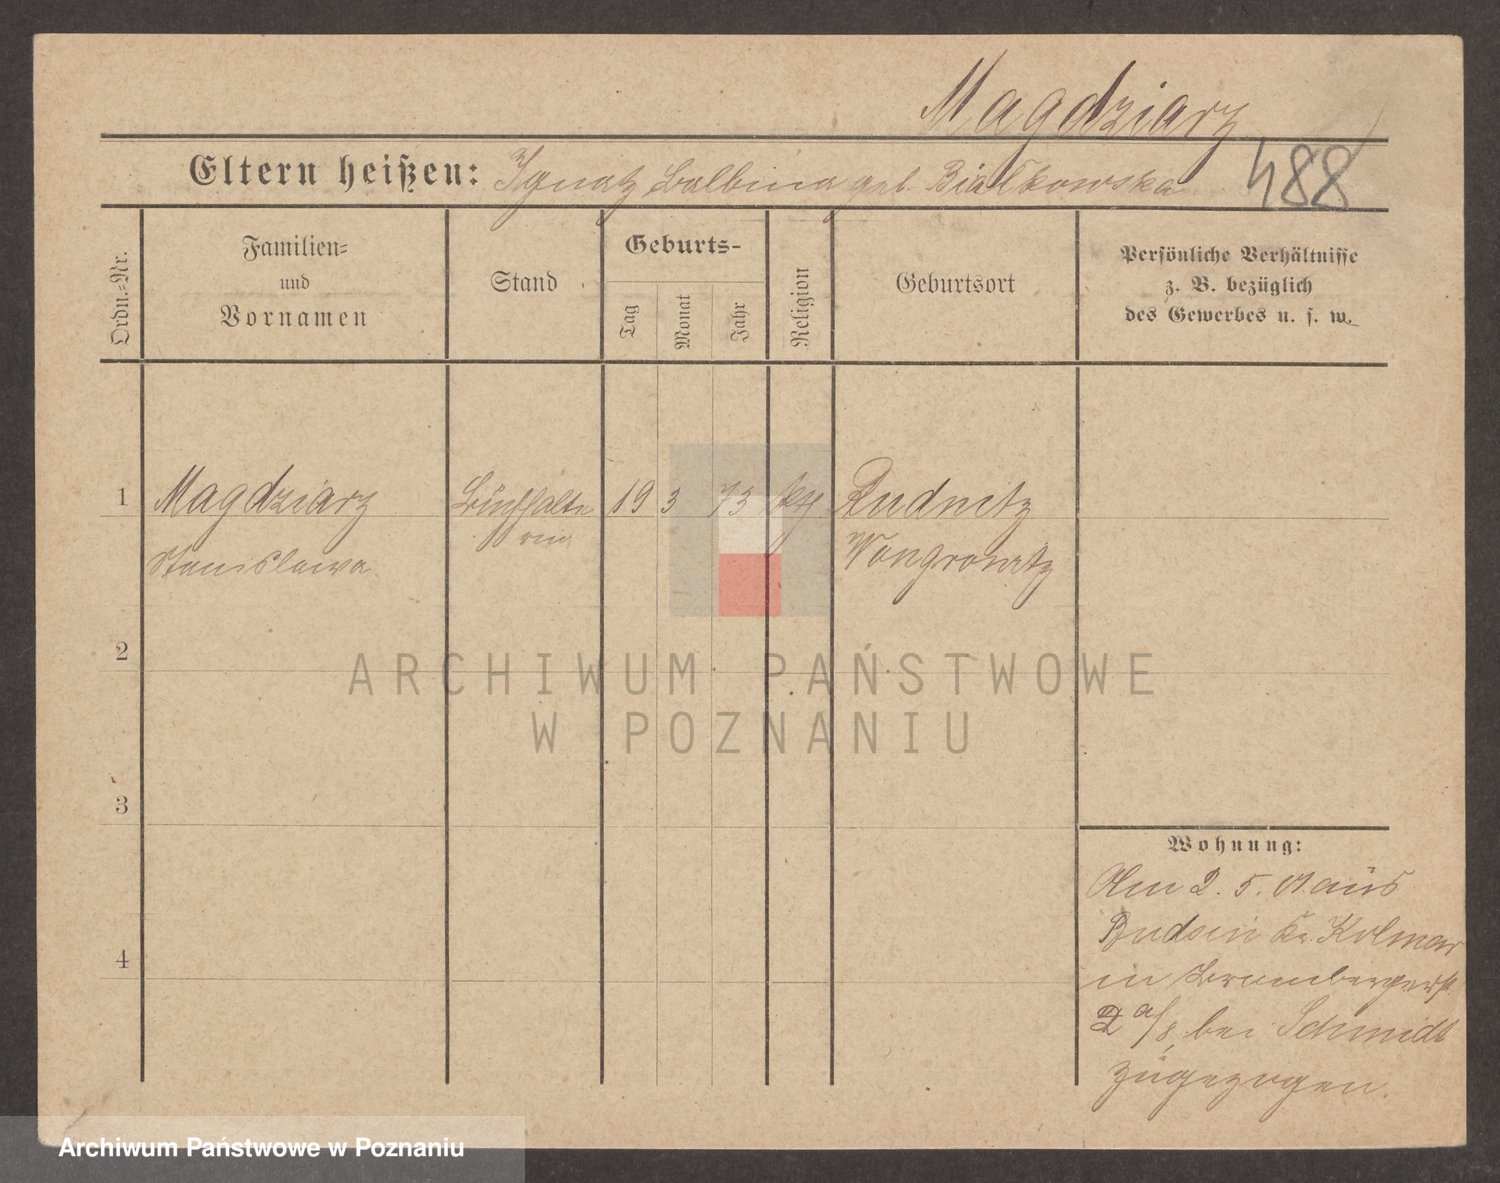 Magdziarz
488
Eltern heißen: Ignatz Balbina geb. Białkowska
Ordn.-Nr.
Familien-
und
Vornamen
Stand
Geburts-
Tag
Monat
Jahr
Religion
Geburtsort
Persönliche Verhältnisse
z. B. bezüglich
des Gewerbes u. s. w.
1 Magdziarz Buchhalte 19 3 73 Rudnitz
Stanislawa rin Wongrowitz
2
3
4
Wohnung:
Am 2. 5. 01 aus
Budsin Kr. Kolmar
in Brombergerst
2 a/8, bei Schmidt
zugezogen.
ARCHIWUM PAŃSTWOWE
W POZNANIU
Archiwum Państwowe w Poznaniu